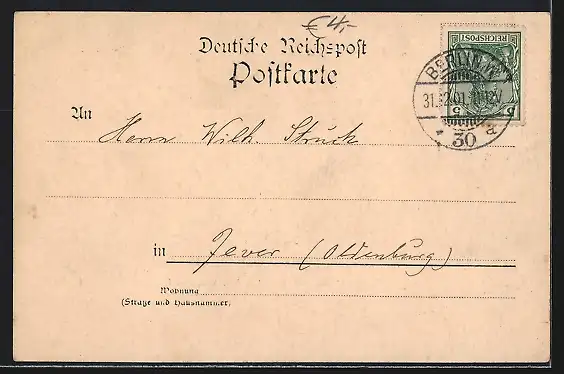 € 4,-
Deutsche Reichspost
Postkarte
REICHSPOST
5 5
BERLIN, N.
31.12.01. 11-12V.
* 30 a
An
Herrn Wilh. Struck
in Jever (Oldenburg)
Wohnung
(Straße und Hausnummer)